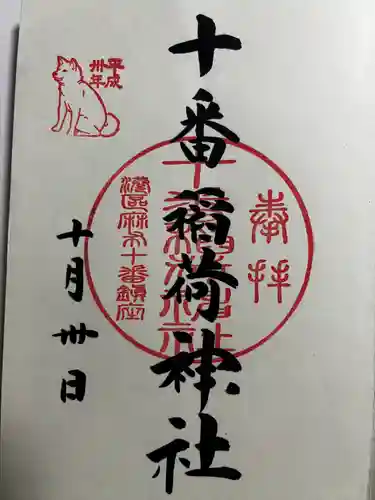 奉拝
十番稲荷神社
平成
卅年
港區麻布十番鎮座
十月卅日